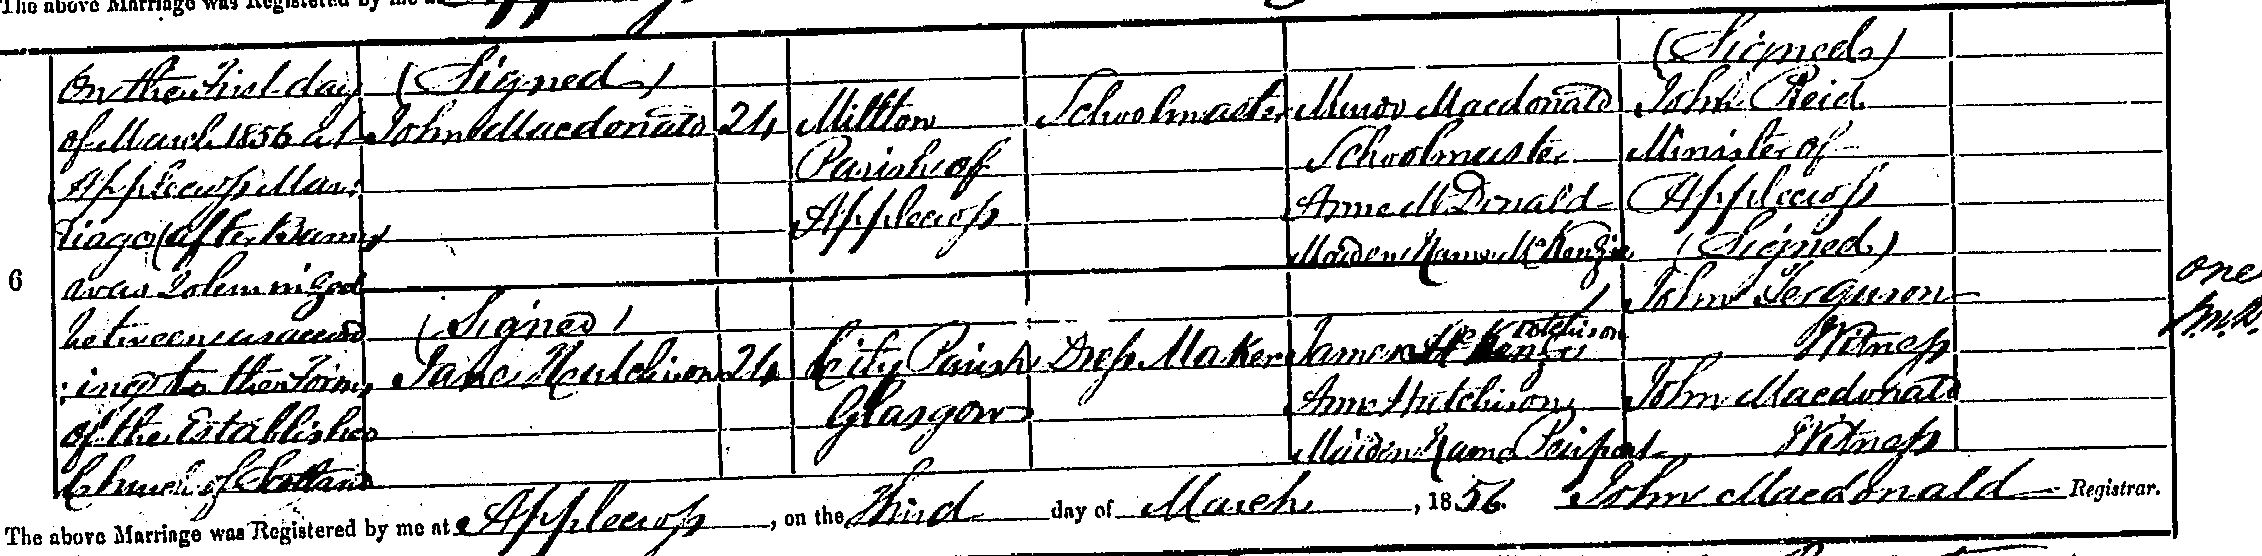 The above Marriage was Registered by me at
6
On the First day
of March 1856 at
Applecross Mar:
riage (after Banns)
was Solemnized
between us accord
:ing to the Form
of the Established
Church of Scotland
(Signed)
John Macdonald
24
Milton
Parish of
Applecross
Schoolmaster
Macdonald
Schoolmaster
Anne McDonald
Maiden Name McKenzie
(Signed)
Jane Hutchison
24
City Parish
Glasgow
Dress Maker
James McKenzie Hutchison
Ann Hutchison
Maiden Name
(Signed)
John Reid
Minister of
Applecross
(Signed)
John Ferguson
Witness
John Macdonald
Witness
one
The above Marriage was Registered by me at Applecross, on the Third day of March, 1856. John Macdonald Registrar.